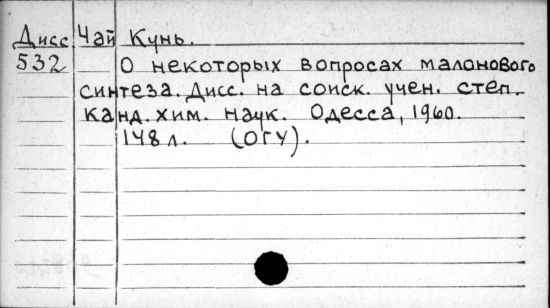 Дисс Чай Кунь.
532 О некоторых вопросах малонового
синтеза. Дисс. на соиск. учен. степ.
канд. хим. наук. Одесса, 1960.
148 л. (ОГУ).